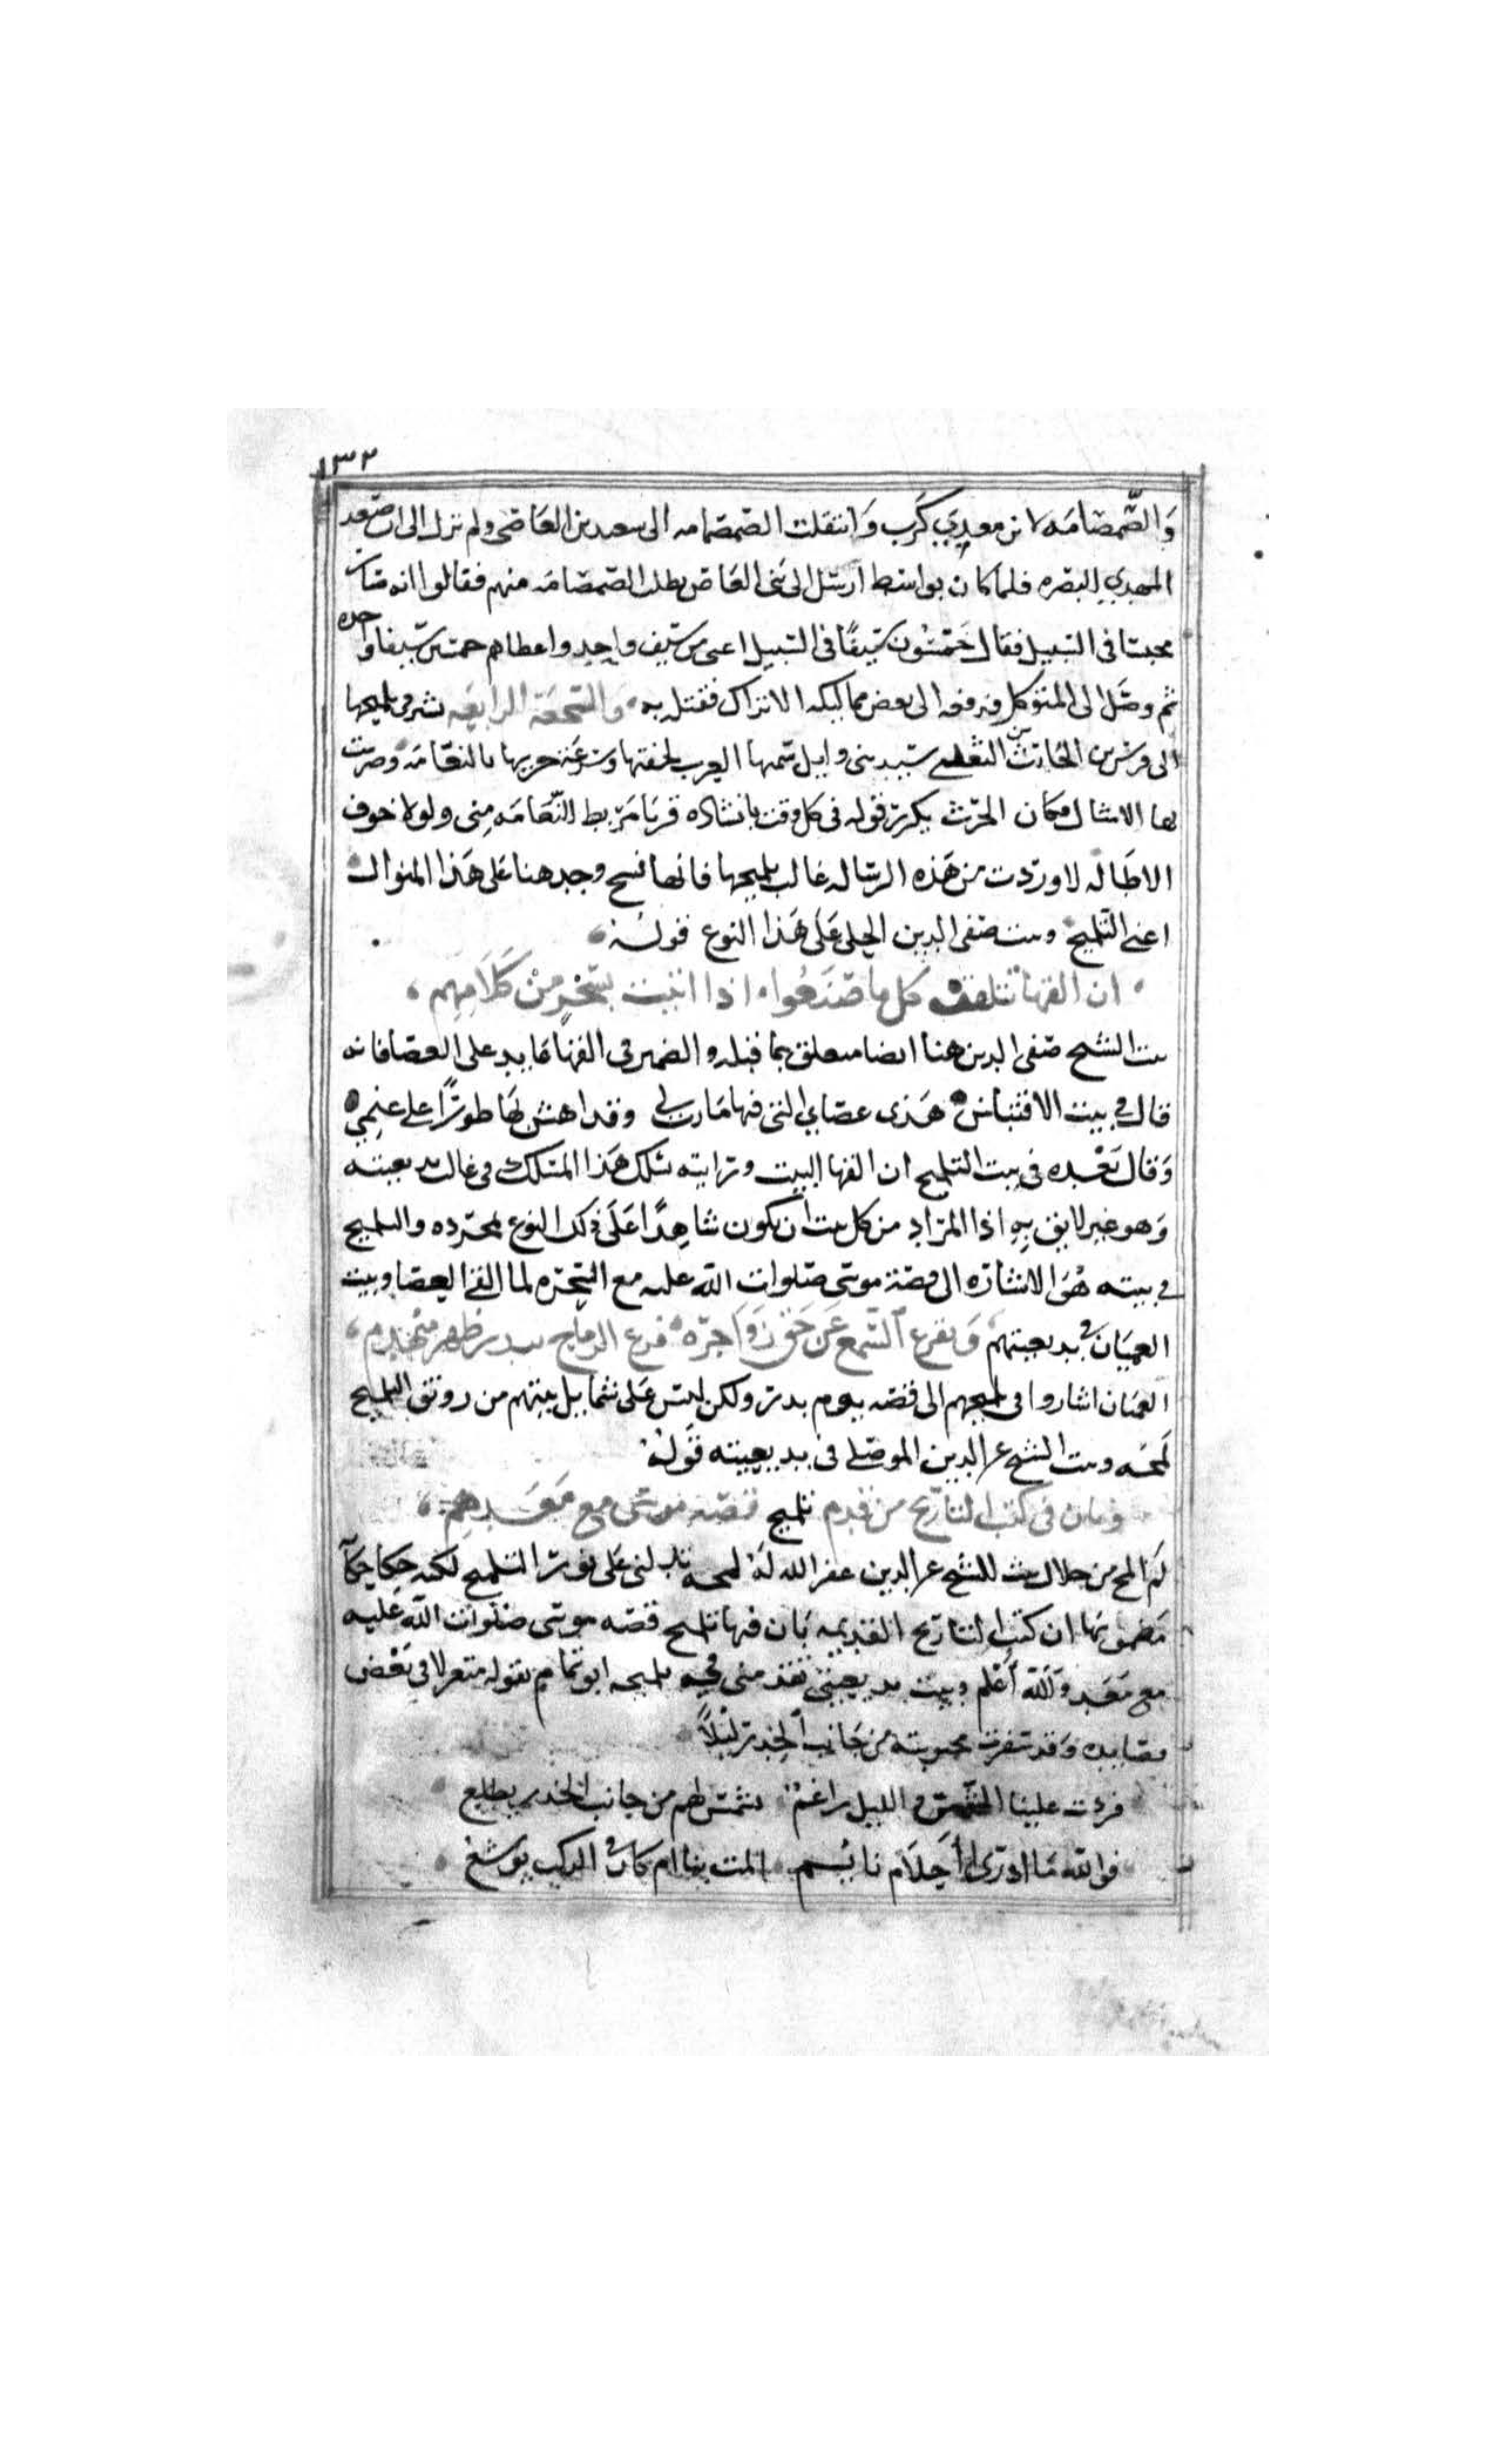 ١٣٢
وَالصَّمصَامَه لابن معدي كَرب وَانتقلت الصمصامه الى سعيد بن العَاصى ولم تزل الى ان صَعد
المهدي البصره فلما كان بواسط ارسل الى بَنى العَاص يطلب الصمصَامَه منهم فقالوا انه صَار
محبسا فى السَبيل فقال خَمسُون سَيفًا فى السَبيل اغنى من سَيف واحدٍ واعطاهم خمسين سَيفا واخده
ثم وصَل الى المتوكل فدفعه الى بعض مماليكه الاتراك فقتله به وَالسَّجعَة الرابعَه يشير فى تلميحها
الى فرس بن الحَارث التغلبى سَيد بنى وايل سَمتها العرب لخفتها وسرعَة جريها بالنعَامَه وضربت
بها الامثال فكان الحرث يكرر قوله فى كل وقت بانشاده قربَا مَربط النَّعَامَه مِنى ولولا خوف
الاطَاله لاوردت من هَذه الرسَاله غالب تلميحها فانها نسج وحدهنا عَلى هَذا المنوال
اعنى التَلميح وبيت صَفى الدين الحلى عَلى هَذا النوع قولهُ
ان القها تتلقف كل ما صَنَعُوا اذا اتيت بسَحرٍ منْ كَلَامِهِم
بيت الشيخ صَفى الدين هنا ايضا متعلق بما قبله والضمير فى القهَا عَايد على العصَا فانه
قال فى بيت الاقتباس هَذى عصَاي التى فيها مَارب لى وقد اهش بهَا طورًا على غنمي
وَقال بَعْده فى بيت التلميح ان القها البيت ورَايته سَلك هَذا المسَلك فى غالب بديعيته
وَهو غير لايق بِهِ اذا المرَاد من كل بيت ان يكون شاهِدًا عَلَى ذلك النوع بمجرده والتلميح
فى بيته هُوَ الاشَارَه الى قصَة موسَى صَلوات الله عليه مع السَحرَه لما القى العصَا وبيت
العميَان فى بديعيتهم وَيقرع السَّمع عَن حَق زَوَاجرَه قرع الرماح ببدر ظهر مُنْهزم
العميَان اشاروا فى تلميحهم الى قصَه يوم بدر ولكن ليسَ عَلى شمايل بيتهم من رونق التلميح
لَمحَه وبيت الشيخ عز الدين الموصَلى فى بديعيته قولهُ
وبان فى كتب التاريخ من قدم تلميح قصَه موسَى مع مَعَدِهِم
لم المح من خلال بيت للشيخ عز الدين غفر الله لهُ لمحه تدلنى عَلى نور التلميح لكنه حكا حكايَه
مَضمونهَا ان كتب التاريخ القديمه بَان فيها تلميح قصَه موسَى صَلوات الله عليه
مع مَعَد وَالله أعْلم وبيت بديعيتى تقدمنى فيه تلميحه ابو تمام بقوله متغزلا فى بَعْض
قصَايده وَقد سَفرت محبوبته من جَانب الخدر لَيْلًا
فردت علينا الشمس والليل راغمُ بشمسٍ لهم من جانب الخدر تطلع
فوالله مَا ادرى أأحلَام نايم المت بنا ام كان فى الركب يوشعُ